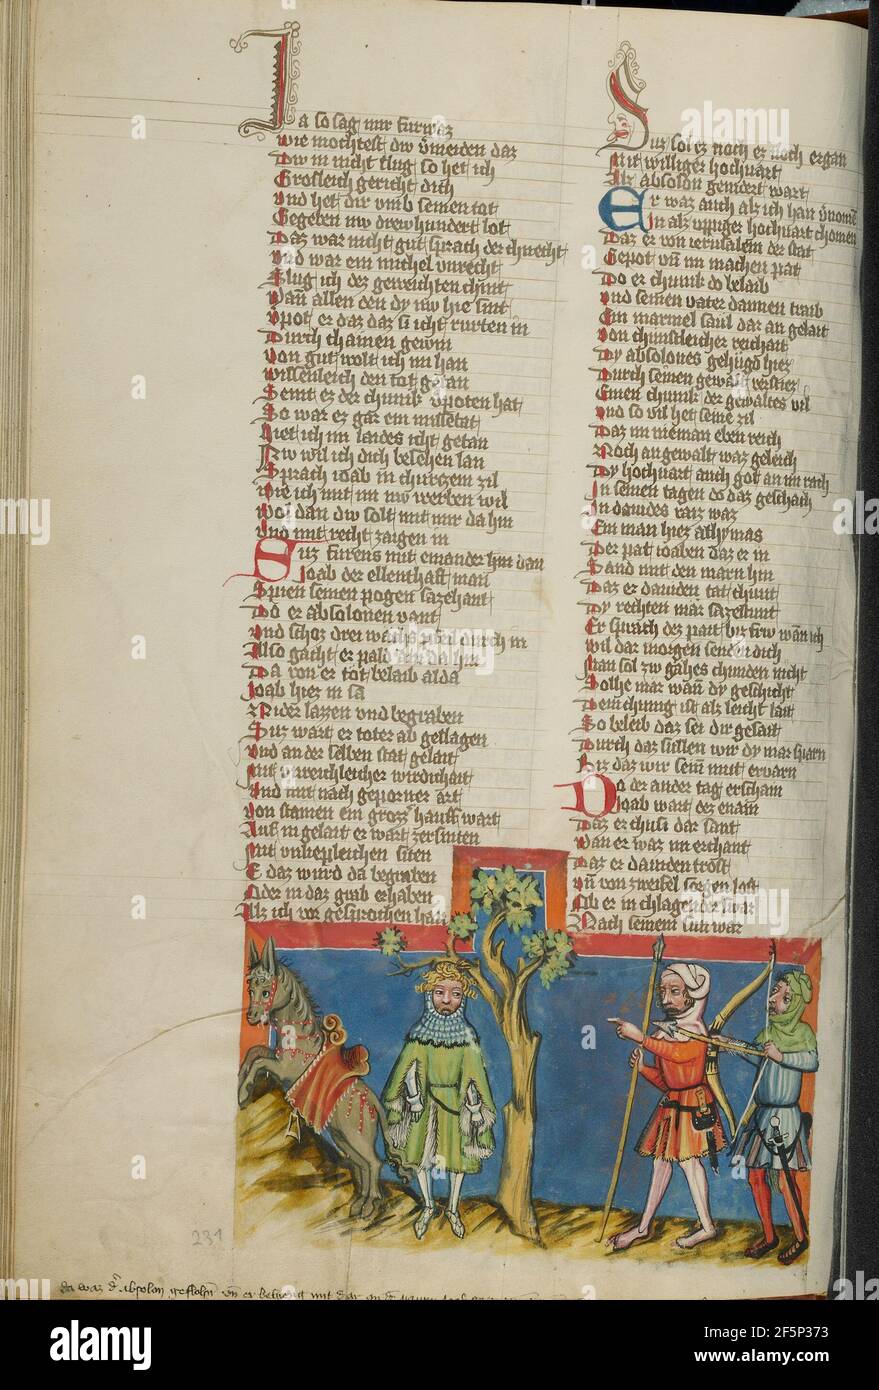 Ja so sag mir furwaz
wie mochtest diw v̄meiden daz
Diw in nicht slug so het ich
Grosleich gericht dich
und het dir umb seinen tot
Gegeben niw drewhundert lot
Daz war nicht gut sprach der chnecht
und war ein michel unrecht
Slug ich dez geweichten chint
Wan̄ allen den dy niw hie sint
vpot er daz daz si icht rurten in
Durch chainen gewin
von gut wolt ich im han
wissenleich den tot getan
Sennt ez der chunik vpoten hat
So war ez gar ein missetat
Hiet ich im laides icht getan
Niw wil ich dich besehen lan
Sprach ioab in churczem zil
wie ich mit im niw werben wil
wol dan diw solt mit mir da hin
und mit recht zaigen in
Suz furens mit einander hin dan
Joab der ellenthaft man
Spien seinen pogen sazehant
Do er absolonen vant
und schoz drei wachs pfeil durch in
Also gacht er pald da hin
Da von er tot belaib alda
Joab hiez in sa
Nider lazzen und begraben
Suz wart er toter ab geslagen
und an der selben stat gelait
Mit unreichleicher wirdichait
und mit nach geporner art
von stainen ein grozz hauff wart
Auf in gelait er wart zersniten
Mit unkepleichen siten
E daz wurd da begraben
Oder in daz grab erhaben
Alz ich vor gesprochen han
Suz sol ez noch er noch ergan
Mit williger hochvart
Alz absolon gemdert wart
Er waz auch alz ich han v̄nome
In alz uppiger hochvart chomen
Daz er von ierusalem der stat
Gepot un̄ im machen pat
Do er chunik do belaib
und seinen vater dannen traib
Ein marmel saul dar an gelait
von chunstleicher reichait
Dy absolones gehugd hiez
Durch seinen gewalt verstiez
Einen chunik der gewaltes vil
und so vil het seine zil
Daz im nieman eben reich
Noch an gewalt waz geleich
Dy hochvart auch got an im rach
In seinen tagen do daz geschach
In davides rais waz
Ein man hiez achymas
Der pat ioaben daz er in
Sand mit den marn hin
Daz er daviden tat chunt
Dy rechten mar sazestunt
Er sprach dez pait biz frw wan̄ ich
wil dar morgen senden dich
Man sol zw gahes chunden nicht
Solhe mar wan̄ dy geschicht
Dem chunig ist alz leicht lait
So beleib daz sei dir gesait
Durch daz sullen wir dy mar sparn
Biz daz wir sein mut ervarn
Do der ander tag erschain
Joab wart dez enain
Daz er chusi dar sant
Wan er waz im erchant
Daz er daviden trost
Un̄ von zweifel sorgen lost
Ob er in chlagender swar
Nach seinem sun war
231
da waz d̾ absolon geflohn̄ un̄ er behieng mit dem
alamy
Image ID: 2F5P373
www.alamy.com